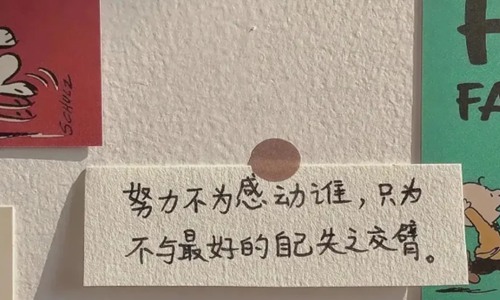 SCHULZ
FA
努力不为感动谁，只为
不与最好的自己失之交臂。